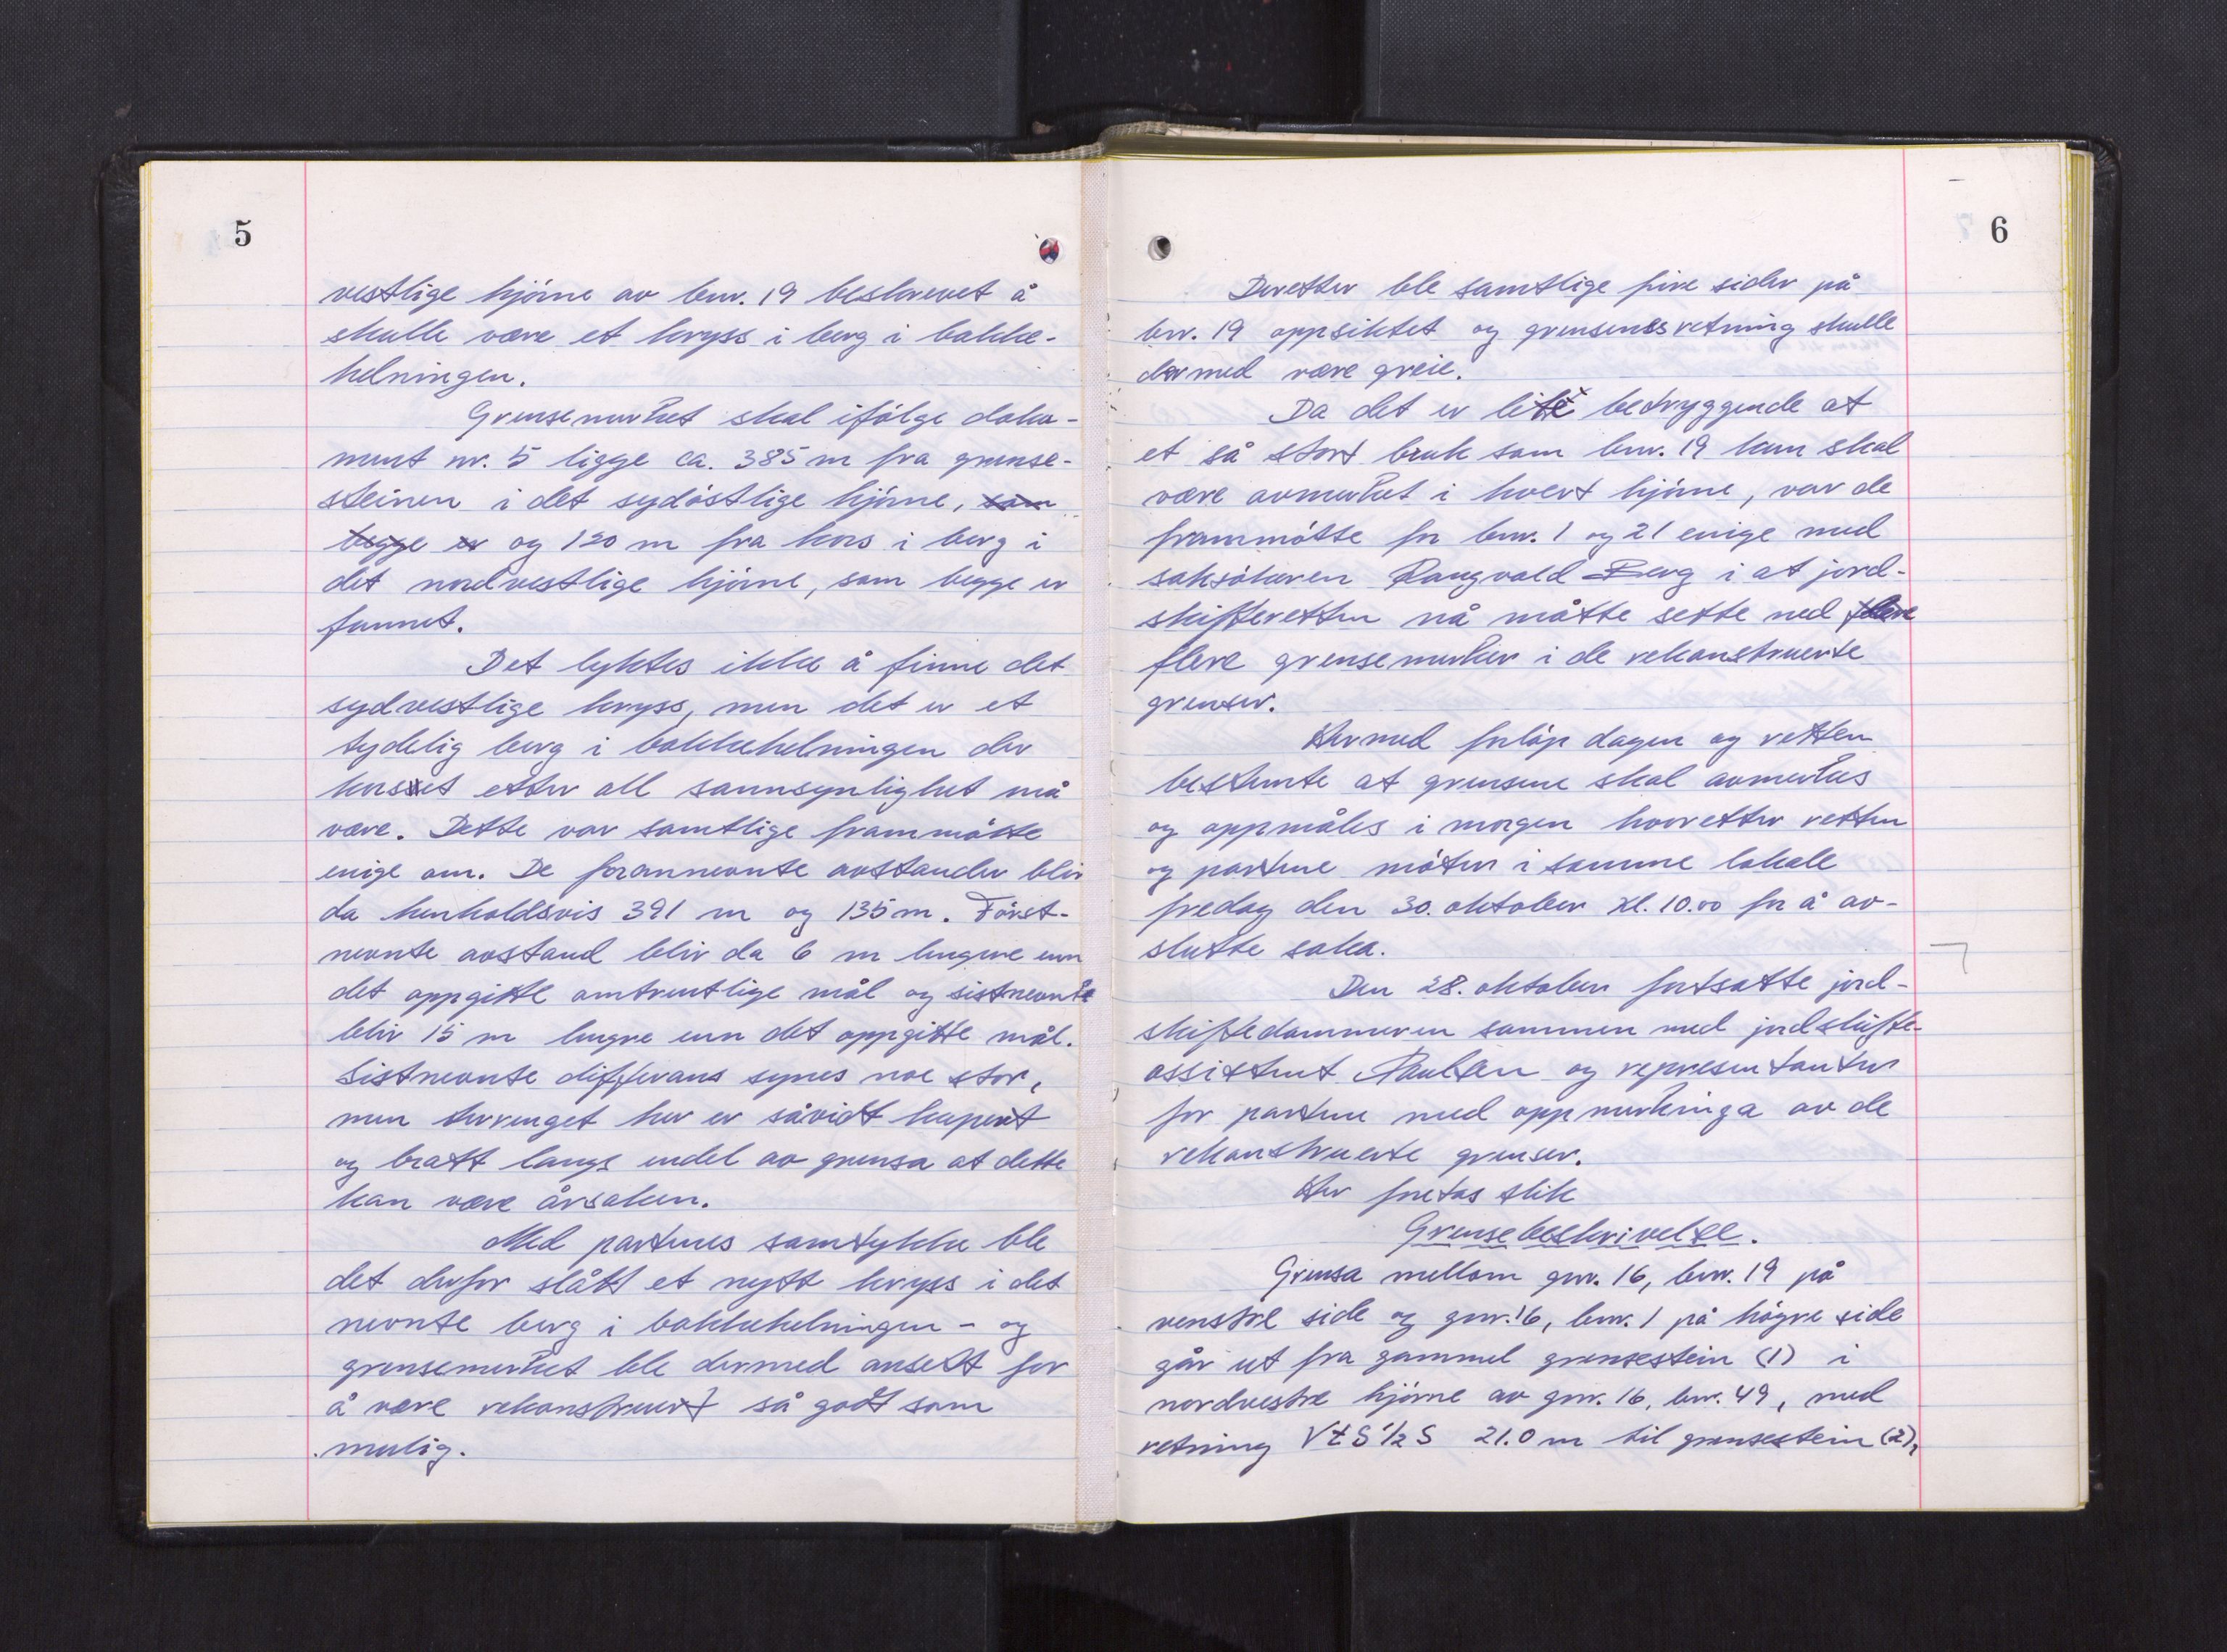 5
vestlige hjørne av bnr. 19 beskrevet å
skulle være et kryss i berg i bakke-
helningen.
Grensemerket skal ifølge doku-
ment nr. 5 ligge ca. 385 m fra grense-
steinen i det sydøstlige hjørne, som
begge er og 120 m fra kors i berg i
det nordvestlige hjørne, som begge er
funnet.
Det lyktes ikke å finne det
sydvestlige kryss, men det er et
tydelig berg i bakkehelningen der
korset etter all sannsynlighet må
være. Dette var samtlige frammøtte
enige om. De forannevnte avstander blir
da henholdsvis 391 m og 135 m. Först-
nevnte avstand blir da 6 m lengere enn
det oppgitte omtrentlige mål og sistnevnte
blir 15 m lengre enn det oppgitte mål.
Sistnevnte differans synes noe stor,
men terrenget her er såvidt kupert
og bratt langs endel av grensa at dette
kan være årsaken.
Med partenes samtykke ble
det derfor slått et nytt kryss i det
nevnte berg i bakkehelningen - og
grensemerket ble dermed ansett for
å være rekonstruert så godt som
mulig.
6
Deretter ble samtlige fire sider på
bnr. 19 oppsiktet og grensenes retning skulle
dermed være greie.
Da det er lite betryggende at
et så stort bruk som bnr. 19 kun skal
være avmerket i hvert hjørne, var de
frammøtte for bnr. 1 og 21 enige med
saksøkeren Rangvald Berg i at jord-
skifteretten nå måtte sette ned flere
flere grensemerker i de rekonstruerte
grenser.
Hermed forløp dagen og retten
bestemte at grensene skal avmerkes
og oppmåles i morgen hvoretter retten
og partene møter i samme lokale
fredag den 30. oktober kl. 10.00 for å av-
slutte saka.
Den 28. oktober fortsatte jord-
skiftedommeren sammen med jordskifte-
assistent Paulsen og representanter
for partene med oppmerkinga av de
rekonstruerte grenser.
Her foretas slik
Grensebeskrivelse.
Grensa mellom gnr. 16, bnr. 19 på
venstre side og gnr. 16, bnr. 1 på högre side
går ut fra gammel grensestein (1) i
nordvestre hjørne av gnr. 16, bnr. 49, med
retning VtS½S 21.0 m til grensestein (2),